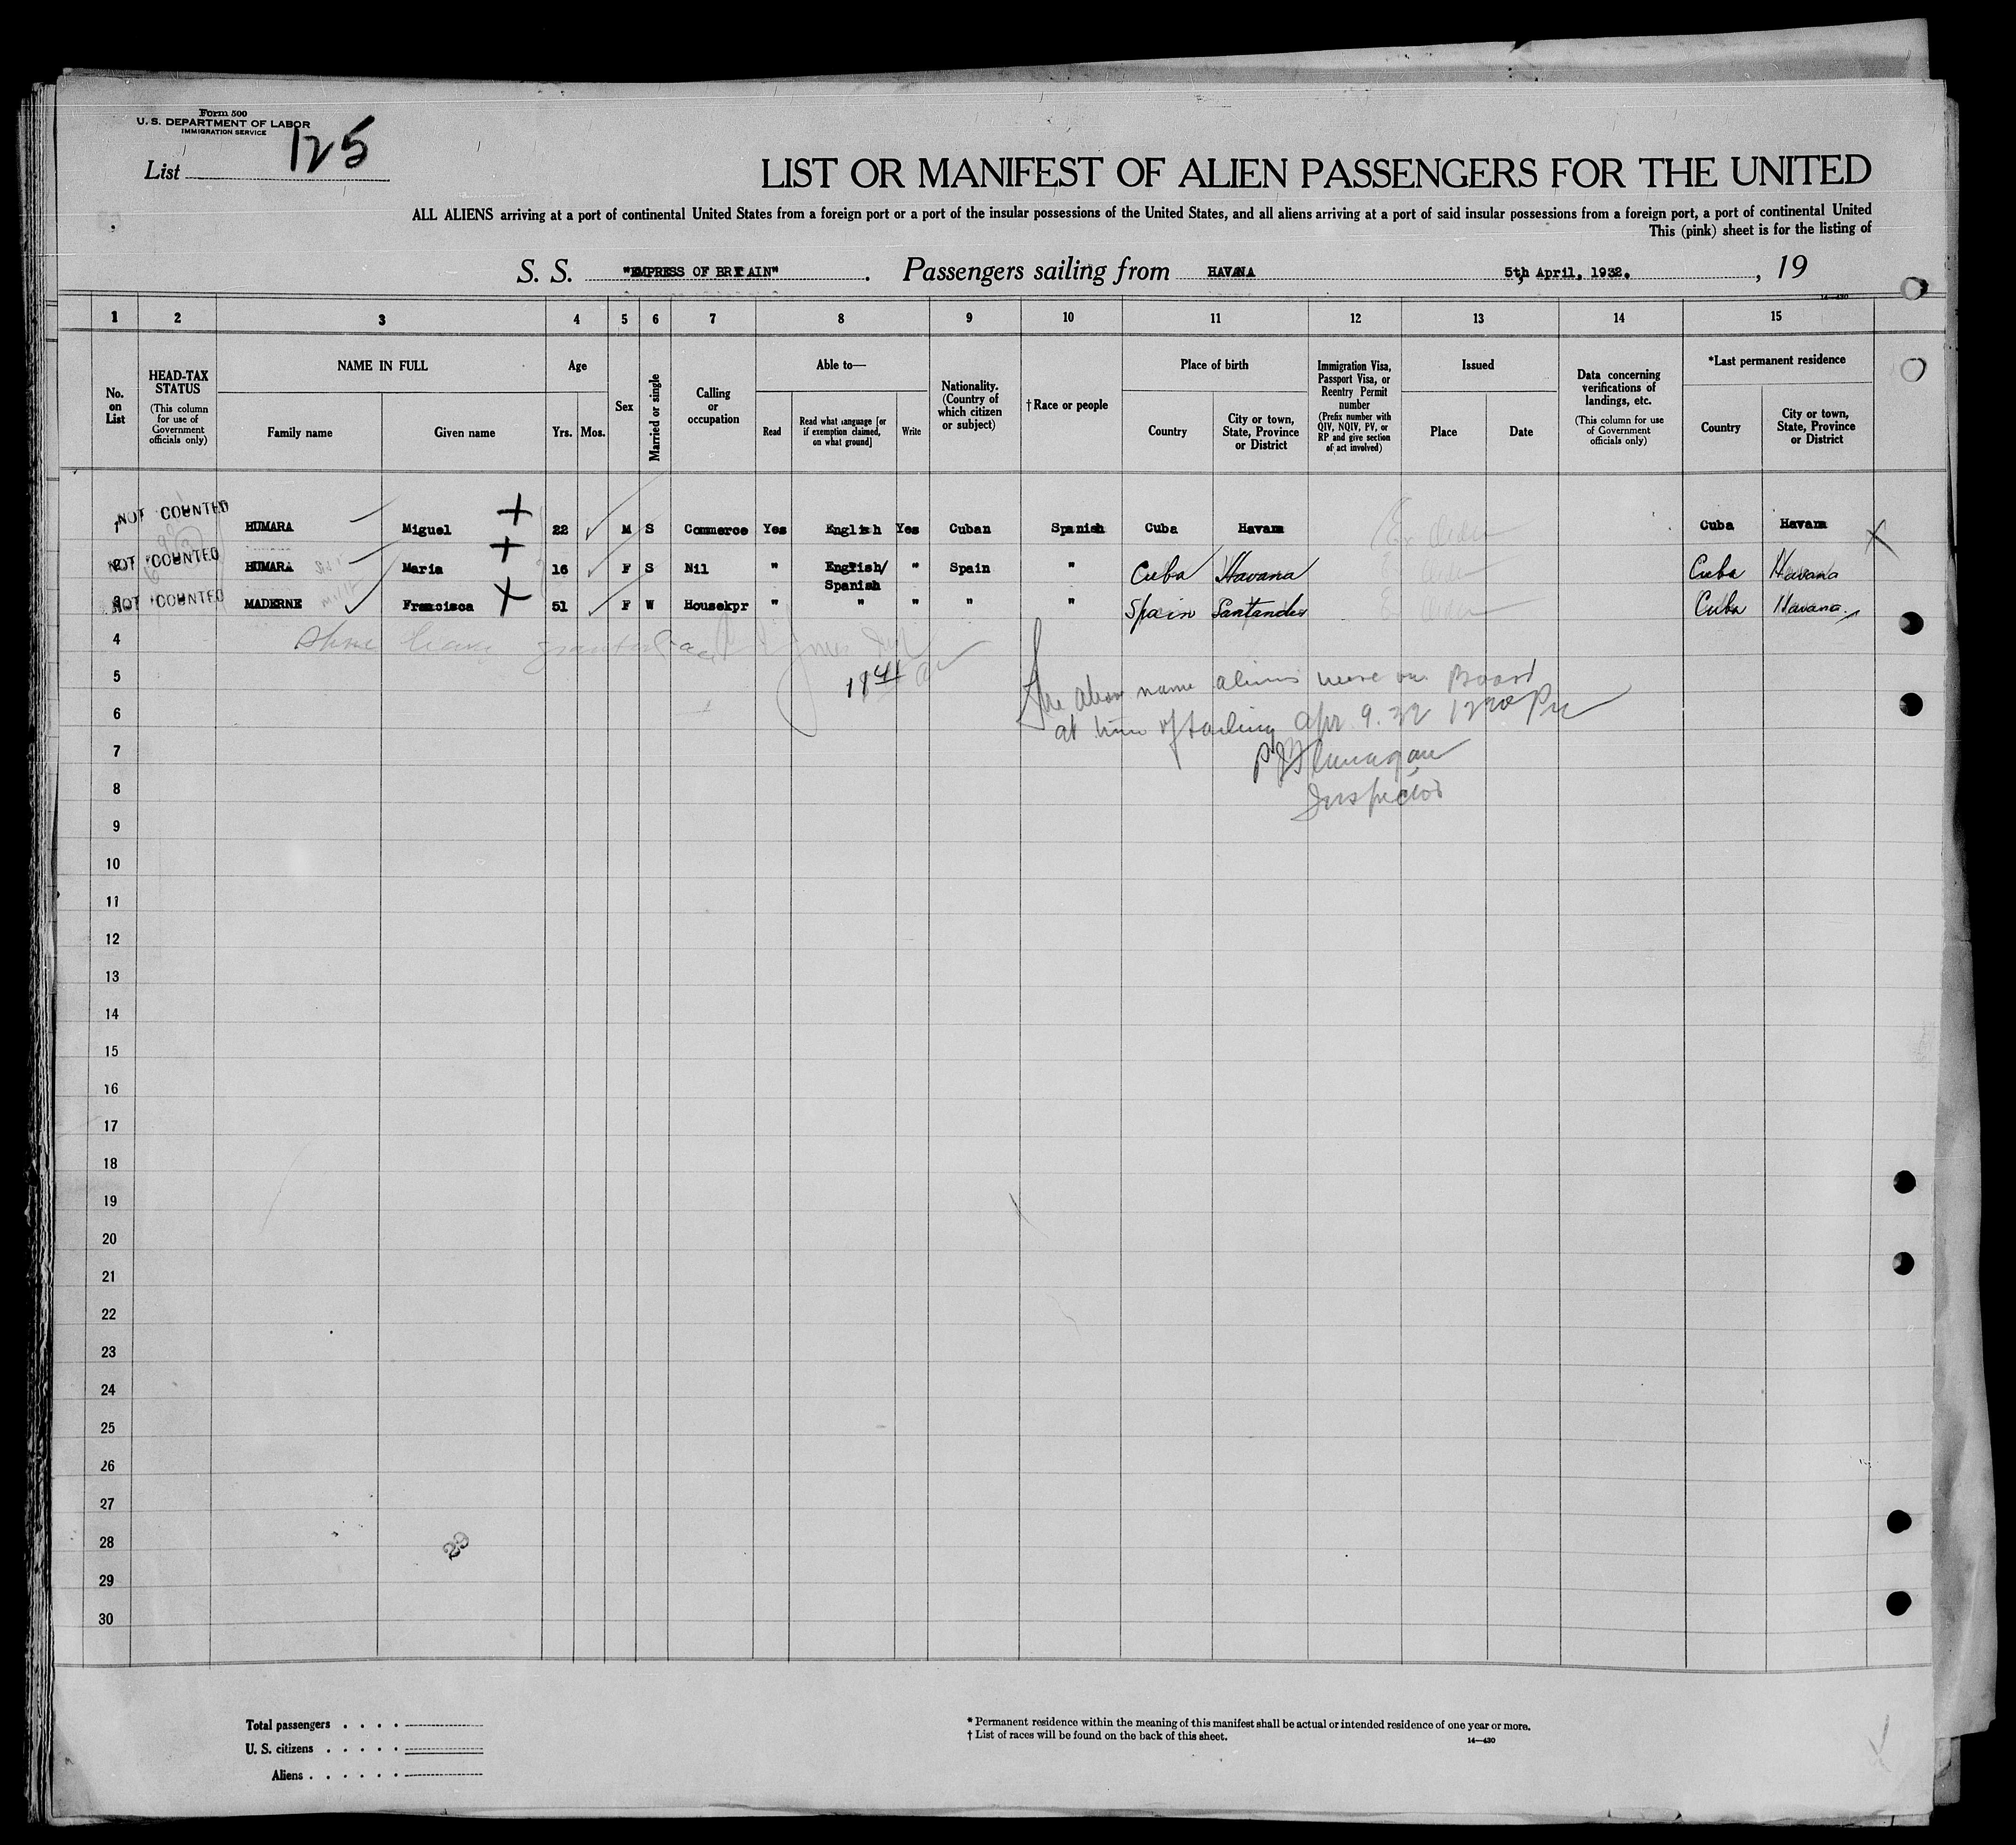 Form 500
U. S. DEPARTMENT OF LABOR
IMMIGRATION SERVICE
List 125
LIST OR MANIFEST OF ALIEN PASSENGERS FOR THE UNITED
ALL ALIENS arriving at a port of continental United States from a foreign port or a port of the insular possessions of the United States, and all aliens arriving at a port of said insular possessions from a foreign port, a port of continental United
This (pink) sheet is for the listing of
S. S. "EMPRESS OF BRITAIN" . Passengers sailing from HAVANA 5th April, 1932. , 19
14—430
1 2 3 4 5 6 7 8 9 10 11 12 13 14 15
No. on List
HEAD-TAX STATUS
(This column for use of Government officials only)
NAME IN FULL
Family name Given name
Age
Yrs. Mos.
Sex
Married or single
Calling or occupation
Able to—
Read
Read what language [or if exemption claimed, on what ground]
Write
Nationality. (Country of which citizen or subject)
† Race or people
Place of birth
Country
City or town, State, Province or District
Immigration Visa, Passport Visa, or Reentry Permit number
(Prefix number with QIV, NQIV, PV, or RP and give section of act involved)
Issued
Place Date
Data concerning verifications of landings, etc.
(This column for use of Government officials only)
*Last permanent residence
Country
City or town, State, Province or District
1 NOT COUNTED HUMARA Miguel 22 M S Commerce Yes English Yes Cuban Spanish Cuba Havana Cuba Havana
2 NOT COUNTED HUMARA Maria 16 F S Nil " English/ Spanish " Spain " Cuba Havana Cuba Havana
3 NOT COUNTED MADERNE Francisca 51 F W Housekpr " " " " " Spain Santander Cuba Havana
4 Shore leave granted
1841
5 The above name aliens were on Board
6 at time of sailing Apr. 9. 32 1220 Pm
7 P J Flanagan
8 Inspector
9
10
11
12
13
14
15
16
17
18
19
20
21
22
23
24
25
26
27
28
23
29
30
Total passengers . . . .
U. S. citizens . . . . .
Aliens . . . . . .
* Permanent residence within the meaning of this manifest shall be actual or intended residence of one year or more.
† List of races will be found on the back of this sheet.
14—430